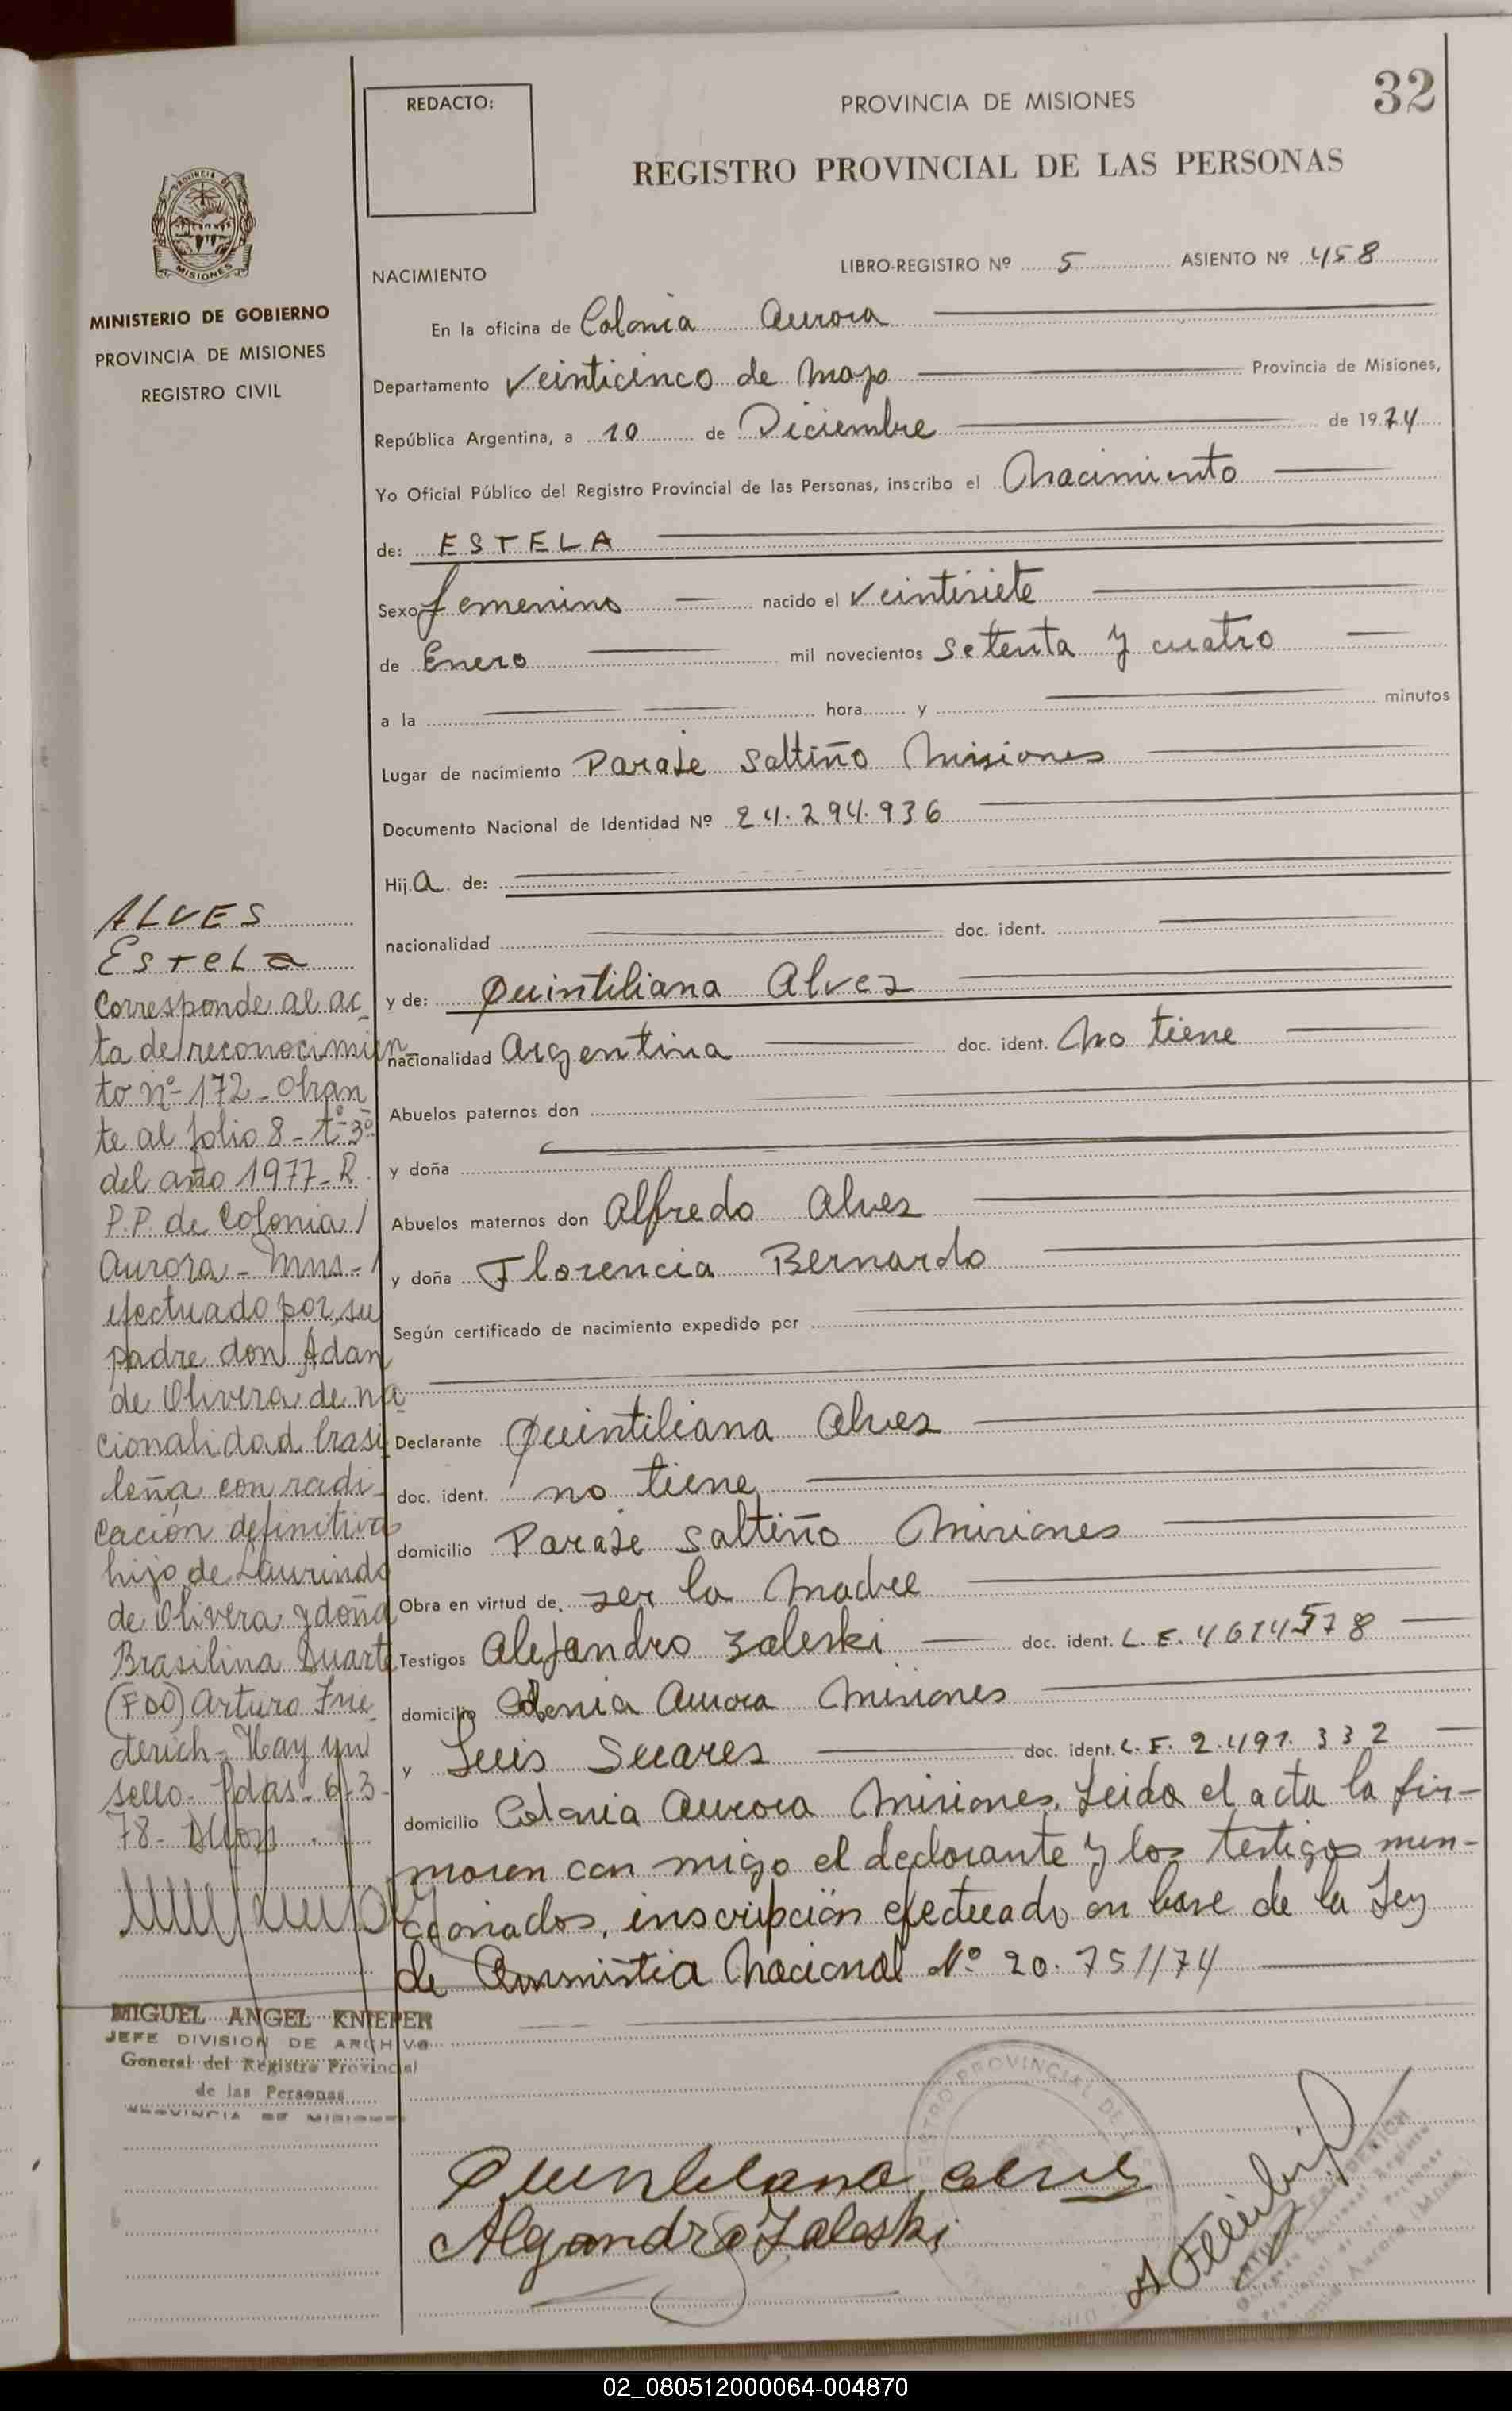 32
REDACTO:
PROVINCIA DE MISIONES
REGISTRO PROVINCIAL DE LAS PERSONAS
PROVINCIA DE
MISIONES
MINISTERIO DE GOBIERNO
PROVINCIA DE MISIONES
REGISTRO CIVIL
NACIMIENTO
LIBRO-REGISTRO Nº 5 ASIENTO Nº 458
En la oficina de Colonia Aurora
Departamento Veinticinco de Mayo Provincia de Misiones,
República Argentina, a 10 de Diciembre de 1974
Yo Oficial Público del Registro Provincial de las Personas, inscribo el Nacimiento
de: ESTELA
Sexo femenino nacido el veintisiete
de Enero mil novecientos setenta y cuatro
a la hora y minutos
Lugar de nacimiento Paraje Saltiño Misiones
Documento Nacional de Identidad Nº 24.294.936
Hija de:
nacionalidad doc. ident.
y de: Quintiliana Alvez
nacionalidad Argentina doc. ident. No tiene
Abuelos paternos don
y doña
Abuelos maternos don Alfredo Alvez
y doña Florencia Bernardo
Según certificado de nacimiento expedido por
Declarante Quintiliana Alvez
doc. ident. no tiene
domicilio Paraje Saltiño Misiones
Obra en virtud de ser la Madre
Testigos Alejandro Zaleski doc. ident. L.E. 4614578
domicilio Colonia Aurora Misiones
y Luis Suares doc. ident. L.E. 2.491.332
domicilio Colonia Aurora Misiones. Leida el acta la fir-
maron con migo el declarante y los testigos men-
cionados, inscripción efectuado en base de la Ley
de Ammistia Nacional Nº 20.751/74
ALVES
Estela
Corresponde al ac-
ta de reconocimien-
to nº 172 - obran-
te al folio 8 - tº 3º
del año 1977 - R.
P.P. de Colonia
Aurora - Mnes -
efectuado por su
padre don Adan
de Olivera de na-
cionalidad brasi
leña con radi-
cación definitiva
hijo de Laurindo
de Olivera y doña
Brasilina Duarte
(FDO) Arturo Frie-
derich - Hay un
sello. Pdas. 6-3-
78-
MIGUEL ANGEL KNIEPER
JEFE DIVISION DE ARCHIVO
General del Registro Provincial
de las Personas
PROVINCIA DE MISIONES
Quintiliana Alves
Alejandro Zaleski
02_080512000064-004870